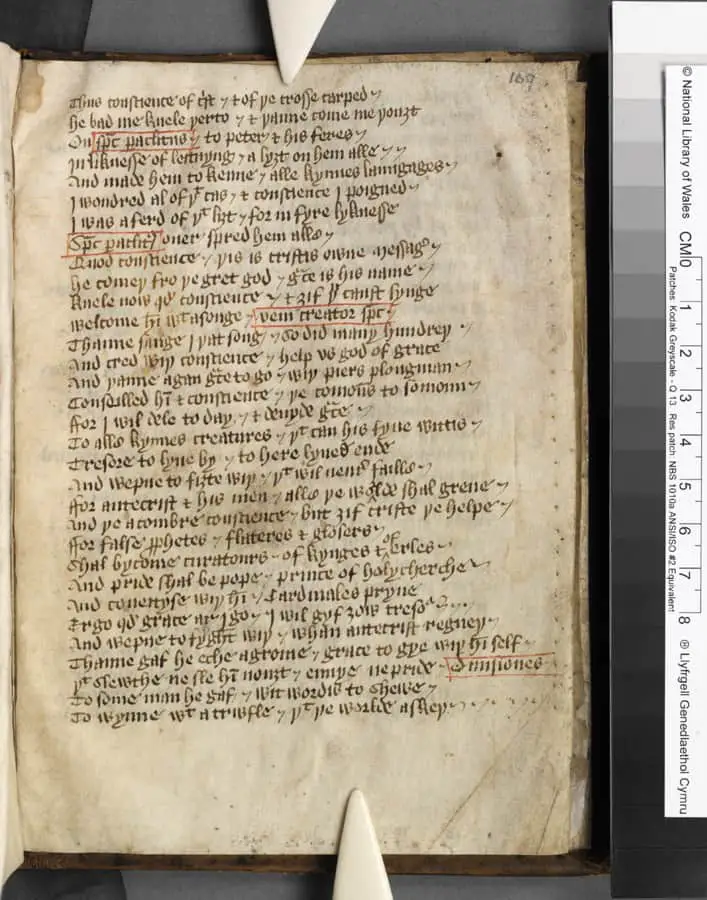 167
Thus conscience of cͬst & of þe crosse carped
He bad me knele þerto & þanne come me þouȝt
On spͨ paclitus to peter & his feres
In liknesse of leitnyng a lyȝt on hem alle
And made hem to kenne alle kynnes langages
I wondred al of þͭ cas & conscience I poigned
I was aferd of þͭ lyȝt for in fyre lyknesse
Spͨ paclitꝰ ouer spred hem alle
Quod conscience þis is cristis owne messagͬ
He comeþ fro þe gret god gͬce is his name
Knele now qd̛ conscience & ȝif þͧ canst synge
welcome hī wͭ a songe veni creator spͨ
Thanne sange I þat song so did many hundreþ
And cred wiþ conscience help vs god of grace
And þanne agan gͬce to go wiþ piers plougman
Conseilled hī & conscience þe comoūs to somoni
ffor I wil dele to day & deuyde gͬce
To alle kynnes creatures þͭ can his fyue wittis
Tresore to lyue by to here lyues ende
And wepne to fiȝte wiþ þͭ wil neuͬ faille
ffor antecrist & his men alle þe worlde shal greue
And þe acombre conscience but ȝif criste þe helpe
ffor false ꝓphetes flateres & glosers
Shal bycome curatours of kynges & of erles
And pride shal be pope prince of holycherche
And coueityse wiþ hī Cardinales þryue
Ergo qd̛ grace ar I go I wil gyf ȝow tresoͬ
And wepne to fyght wiþ whan antecrist regneþ
Thanne gaf he eche a grome grace to gye wiþ hī self
þͭ slewthe ne sle hī nouȝt enuye ne pride diuisiones
To some man he gaf wit wordis to shewe
To wynne wͭ a truwfle þͭ þe worlde askeþ
© National Library of Wales CM
0 1 2 3 4 5 6 7 8
® Llyfrgell Genedlaethol Cymru
Patches: Kodak Greyscale - Q 13 Res patch: NBS 1010a ANSI/ISO #2 Equivalent